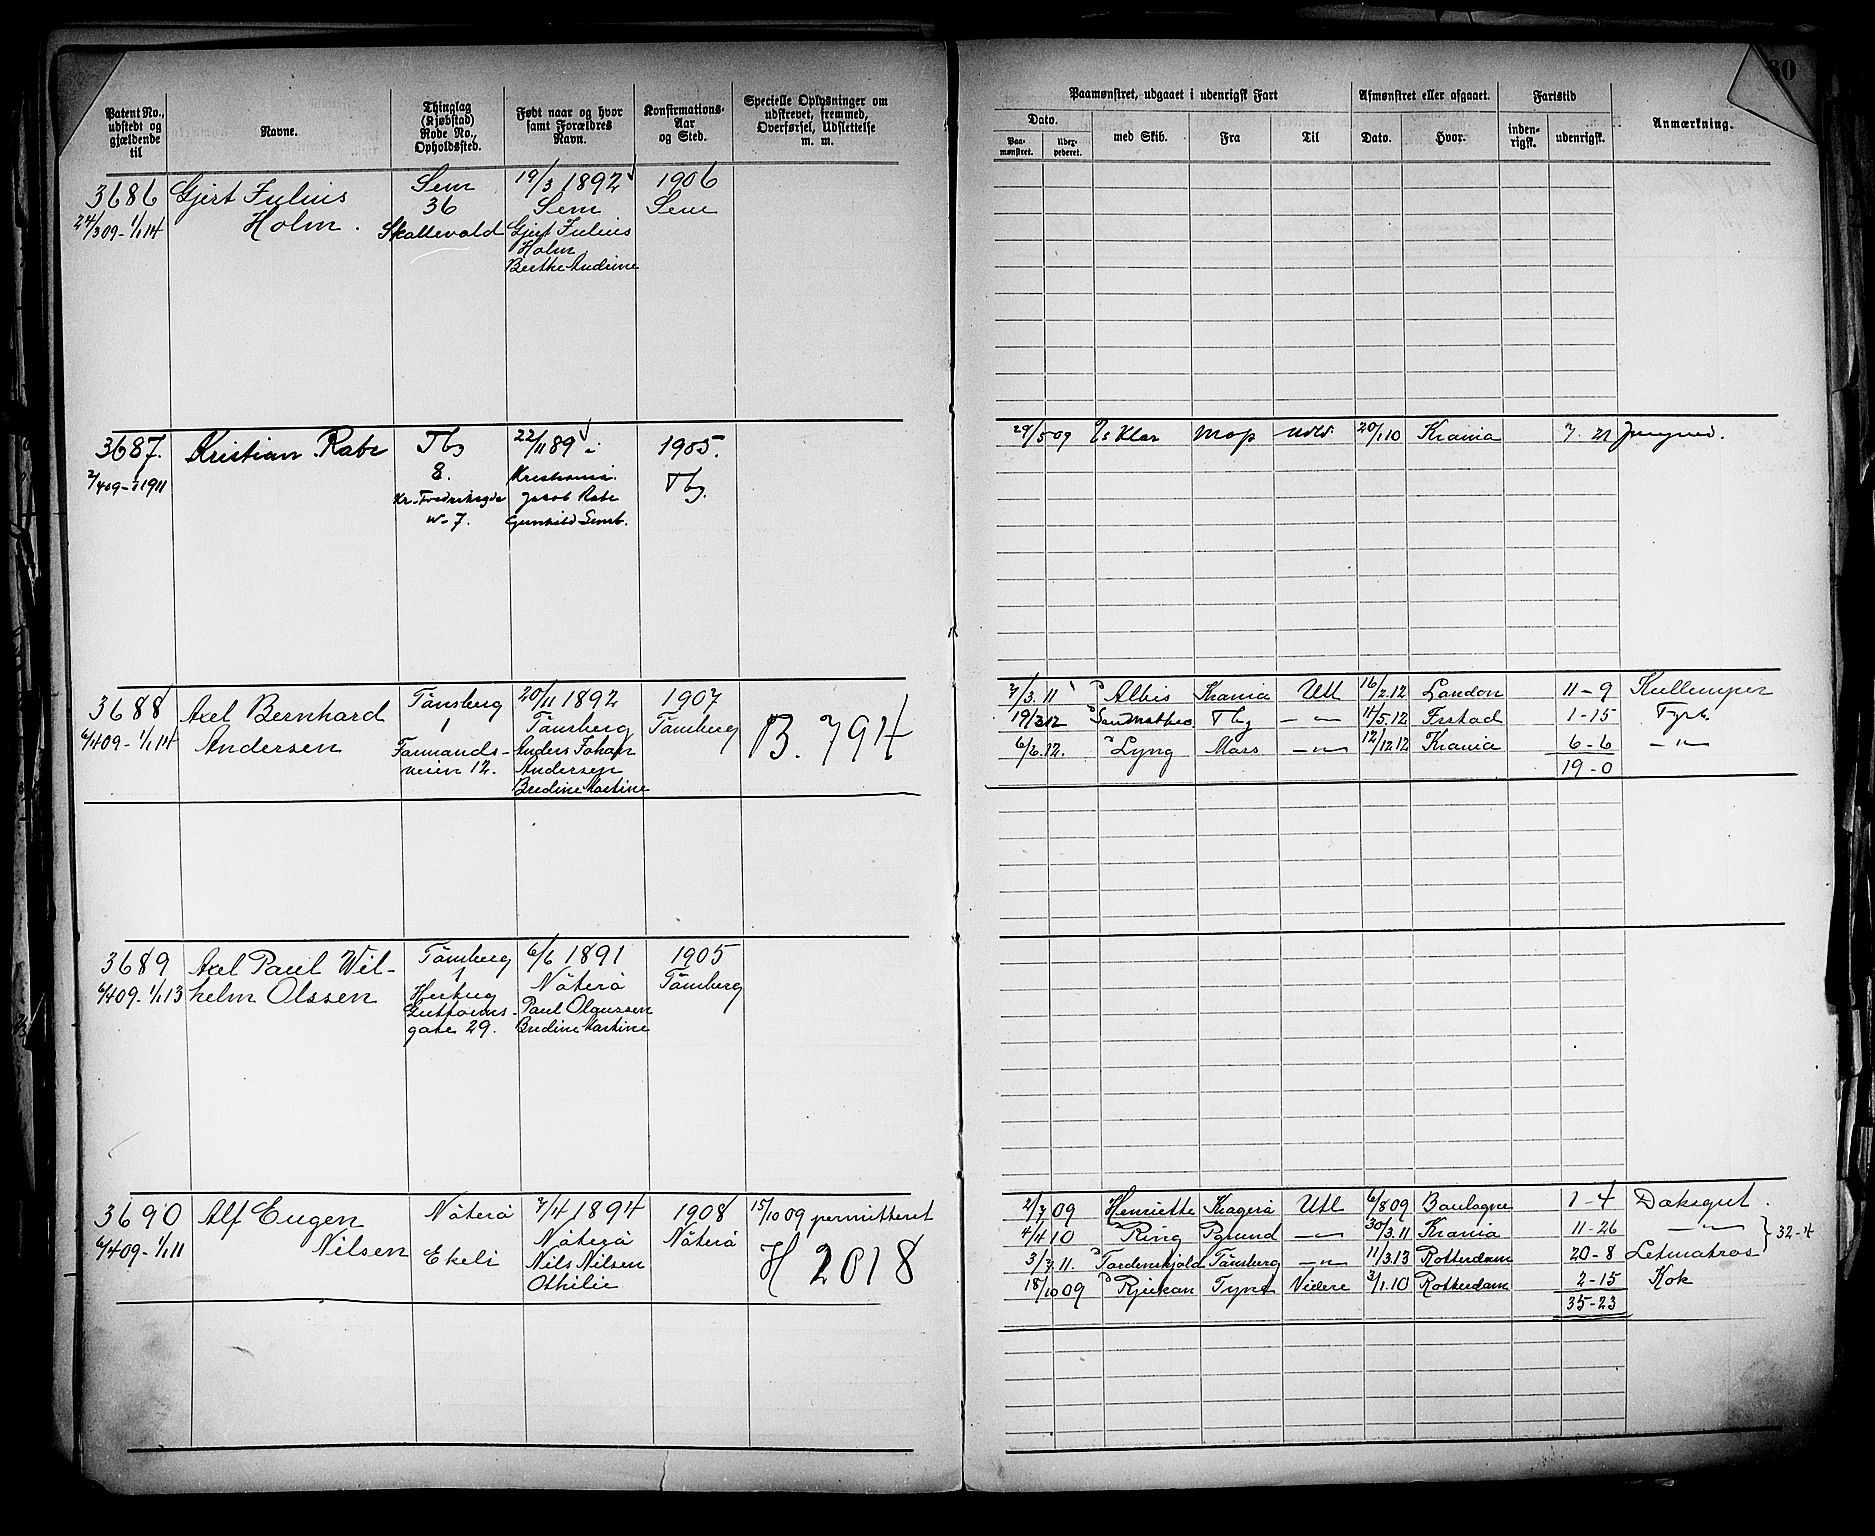 80
Patent No., udstedt og gjældende til
Navne.
Thinglag (Kjøbstad) Rode No., Opholdssted.
Født naar og hvor samt Forældres Navn.
Konfirmations-Aar og Sted.
Specielle Oplysninger om udstrevet, fremmed, Overførsel, Udslettelse m. m.
Paamønstret, udgaaet i udenrigsk Fart
Afmønstret eller afgaaet.
Fartstid
Anmærkning.
Dato.
Paamønstret.
med Skib.
Fra
Til
Dato.
Hvor.
indenrigsk.
udenrigsk.
3686 Gjert Julius Sem 19/3 1892 1906
24/3 09 - 1/1 14 Holm. 36 Sem Sem
Skallevold Gjert Julius
Holm
Berthe Andrine
3687. Kristian Rabe Tbg 22/11 89 1905.
2/4 09 - 1911 8. Kristiania. Tbg.
Kr. Fredriksgde Jacob Rabe
No 7. Gunhild
29/5 09 Klar Moss Udl. 20/1 10 Krania 7. 21 Jungmd.
3688 Axel Bernhard Tönsberg 20/11 1892 1907
6/4 09 - 1/1 14 Andersen 1 Tönsberg Tönsberg B. 794
Farmands- Anders Johan
veien 12. Andersen
Bredine Martine
7/3 11 Albis Krania Utl 16/2 12 London 11-9 Kullemper
19/3 12 Tbg -"- 11/5 12 Frstad 1-15 Fyrb.
6/6 12. Lyng Moss -"- 12/12 12 Krania 6-6 -"-
19-0
3689 Axel Paul Wil- Tönsberg 6/6 1891 1905
6/4 09 - 1/1 13 helm Olssen 1 Nöterö Tönsberg
Hertug Paul Olaussen
Guttorms- Bredine Martine
gate 29.
3690 Alf Eugen Nöterö 7/4 1894 1908 15/10 09 permitteret
6/4 09 - 1/1 11 Nilsen Ekeli Nöterö Nöterö H 2018
Nils Nilsen
Othilie
2/7 09 Henriette Kragerö Utl 6/8 09 Boulogne 1-4 Daksgut.
4/4 10 Ring Pgrund -"- 30/3 11 Krania 11-26 -"- 32-4
3/7 11. Tordenskjold Tönsberg -"- 11/3 13 Rotterdam 20-8 Letmatros
18/10 09 Rjukan Tyne Videre 3/1 10 Rotterdam 2-15 Kok
35-23